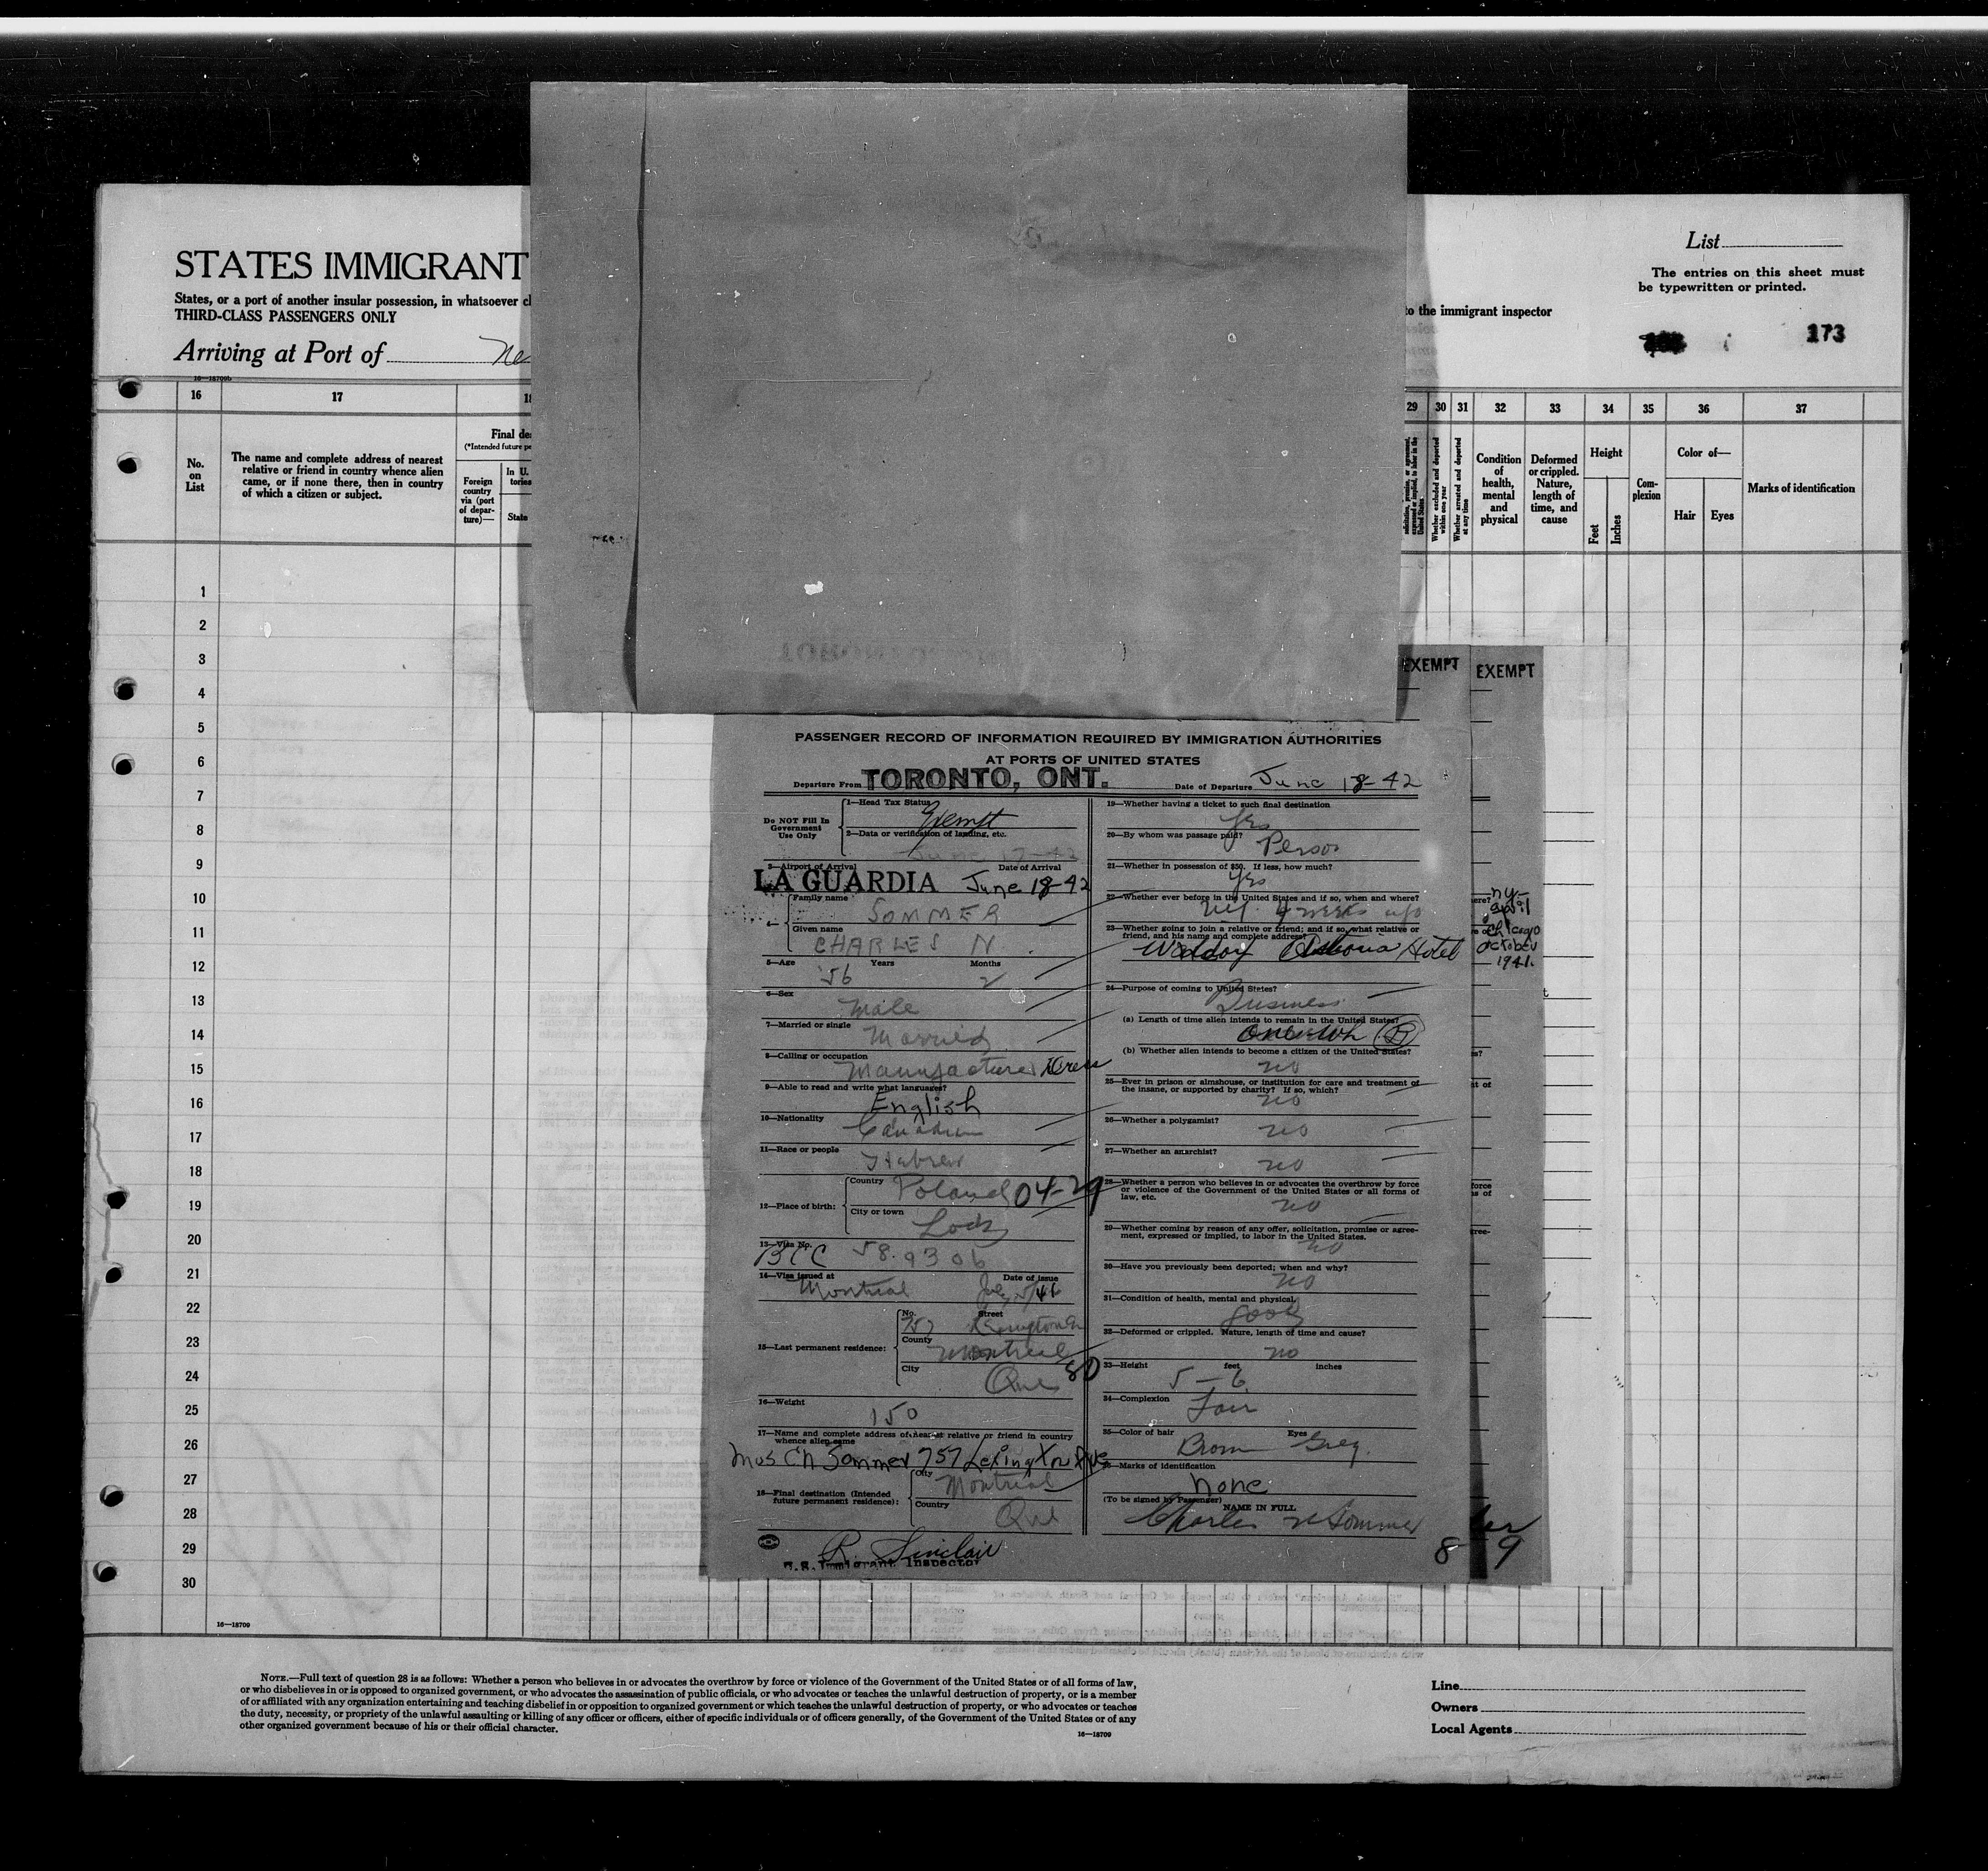 STATES IMMIGRANT
States, or a port of another insular possession, in whatsoever cl
THIRD-CLASS PASSENGERS ONLY
Arriving at Port of Ne
List
The entries on this sheet must
be typewritten or printed.
to the immigrant inspector
173
16—18709b
16 17 18 29 30 31 32 33 34 35 36 37
No.
on
List
The name and complete address of nearest
relative or friend in country whence alien
came, or if none there, then in country
of which a citizen or subject.
Final de
(*Intended future pe
Foreign
country
via (port
of depar-
ture)—
In U.
tories
State
solicitation, promise, or agreement,
expressed or implied, to labor in the
United States
Whether excluded and deported
within one year
Whether arrested and deported
at any time
Condition
of
health,
mental
and
physical
Deformed
or crippled.
Nature,
length of
time, and
cause
Height
Feet
Inches
Com-
plexion
Color of—
Hair Eyes
Marks of identification
1
2
3
4
5
6
7
8
9
10
11
12
13
14
15
16
17
18
19
20
21
22
23
24
25
26
27
28
29
30
16—18709
EXEMPT EXEMPT
PASSENGER RECORD OF INFORMATION REQUIRED BY IMMIGRATION AUTHORITIES
AT PORTS OF UNITED STATES
Departure From TORONTO, ONT. Date of Departure June 18-42
Do NOT Fill In
Government
Use Only
1—Head Tax Status
Exempt
2—Data or verification of landing, etc.
June 17-42
3—Airport of Arrival Date of Arrival
LA GUARDIA June 18-42
4—
Family name
SOMMER
Given name
CHARLES N
5—Age Years Months
56 2
6—Sex
Male
7—Married or single
Married
8—Calling or occupation
Manufacturer Dress
9—Able to read and write what languages?
English
10—Nationality
Canadian
11—Race or people
Hebrew
12—Place of birth:
Country
Poland 04-29
City or town
Lodz
13—Visa No.
BCC 58.9306
14—Visa issued at Date of issue
Montreal July 5/41
15—Last permanent residence:
No. Street
757 Lexington Av
County
Montreal
80
City
Que
16—Weight
150
17—Name and complete address of nearest relative or friend in country
whence alien came
Mrs C N Sommer 757 Lexington Ave
18—Final destination (Intended
future permanent residence):
City
Montreal
Country
Que
R. Sinclair
U.S. Immigrant Inspector
19—Whether having a ticket to such final destination
Yes
20—By whom was passage paid?
Person
21—Whether in possession of $50. If less, how much?
Yes
22—Whether ever before in the United States and if so, when and where?
N.Y. 4 weeks ago
23—Whether going to join a relative or friend; and if so, what relative or
friend, and his name and complete address?
Waldorf Astoria Hotel
24—Purpose of coming to United States?
Business
(a) Length of time alien intends to remain in the United States?
One Wk B
(b) Whether alien intends to become a citizen of the United States?
no
25—Ever in prison or almshouse, or institution for care and treatment of
the insane, or supported by charity? If so, which?
no
26—Whether a polygamist?
no
27—Whether an anarchist?
no
28—Whether a person who believes in or advocates the overthrow by force
or violence of the Government of the United States or all forms of
law, etc.
no
29—Whether coming by reason of any offer, solicitation, promise or agree-
ment, expressed or implied, to labor in the United States.
no
30—Have you previously been deported; when and why?
no
31—Condition of health, mental and physical,
good
32—Deformed or crippled. Nature, length of time and cause?
no
33—Height feet inches
5 — 6
34—Complexion
Fair
35—Color of hair Eyes
Brown Grey.
36—Marks of identification
none
(To be signed by Passenger)
NAME IN FULL
Charles N Sommer
8 9
ny-
ere?
April
Chicago
October
1941.
s?
nt of
force
ns of
gree-
NOTE.—Full text of question 28 is as follows: Whether a person who believes in or advocates the overthrow by force or violence of the Government of the United States or of all forms of law,
or who disbelieves in or is opposed to organized government, or who advocates the assassination of public officials, or who advocates or teaches the unlawful destruction of property, or is a member
of or affiliated with any organization entertaining and teaching disbelief in or opposition to organized government or which teaches the unlawful destruction of property, or who advocates or teaches
the duty, necessity, or propriety of the unlawful assaulting or killing of any officer or officers, either of specific individuals or of officers generally, of the Government of the United States or of any
other organized government because of his or their official character.
16—18709
Line
Owners
Local Agents